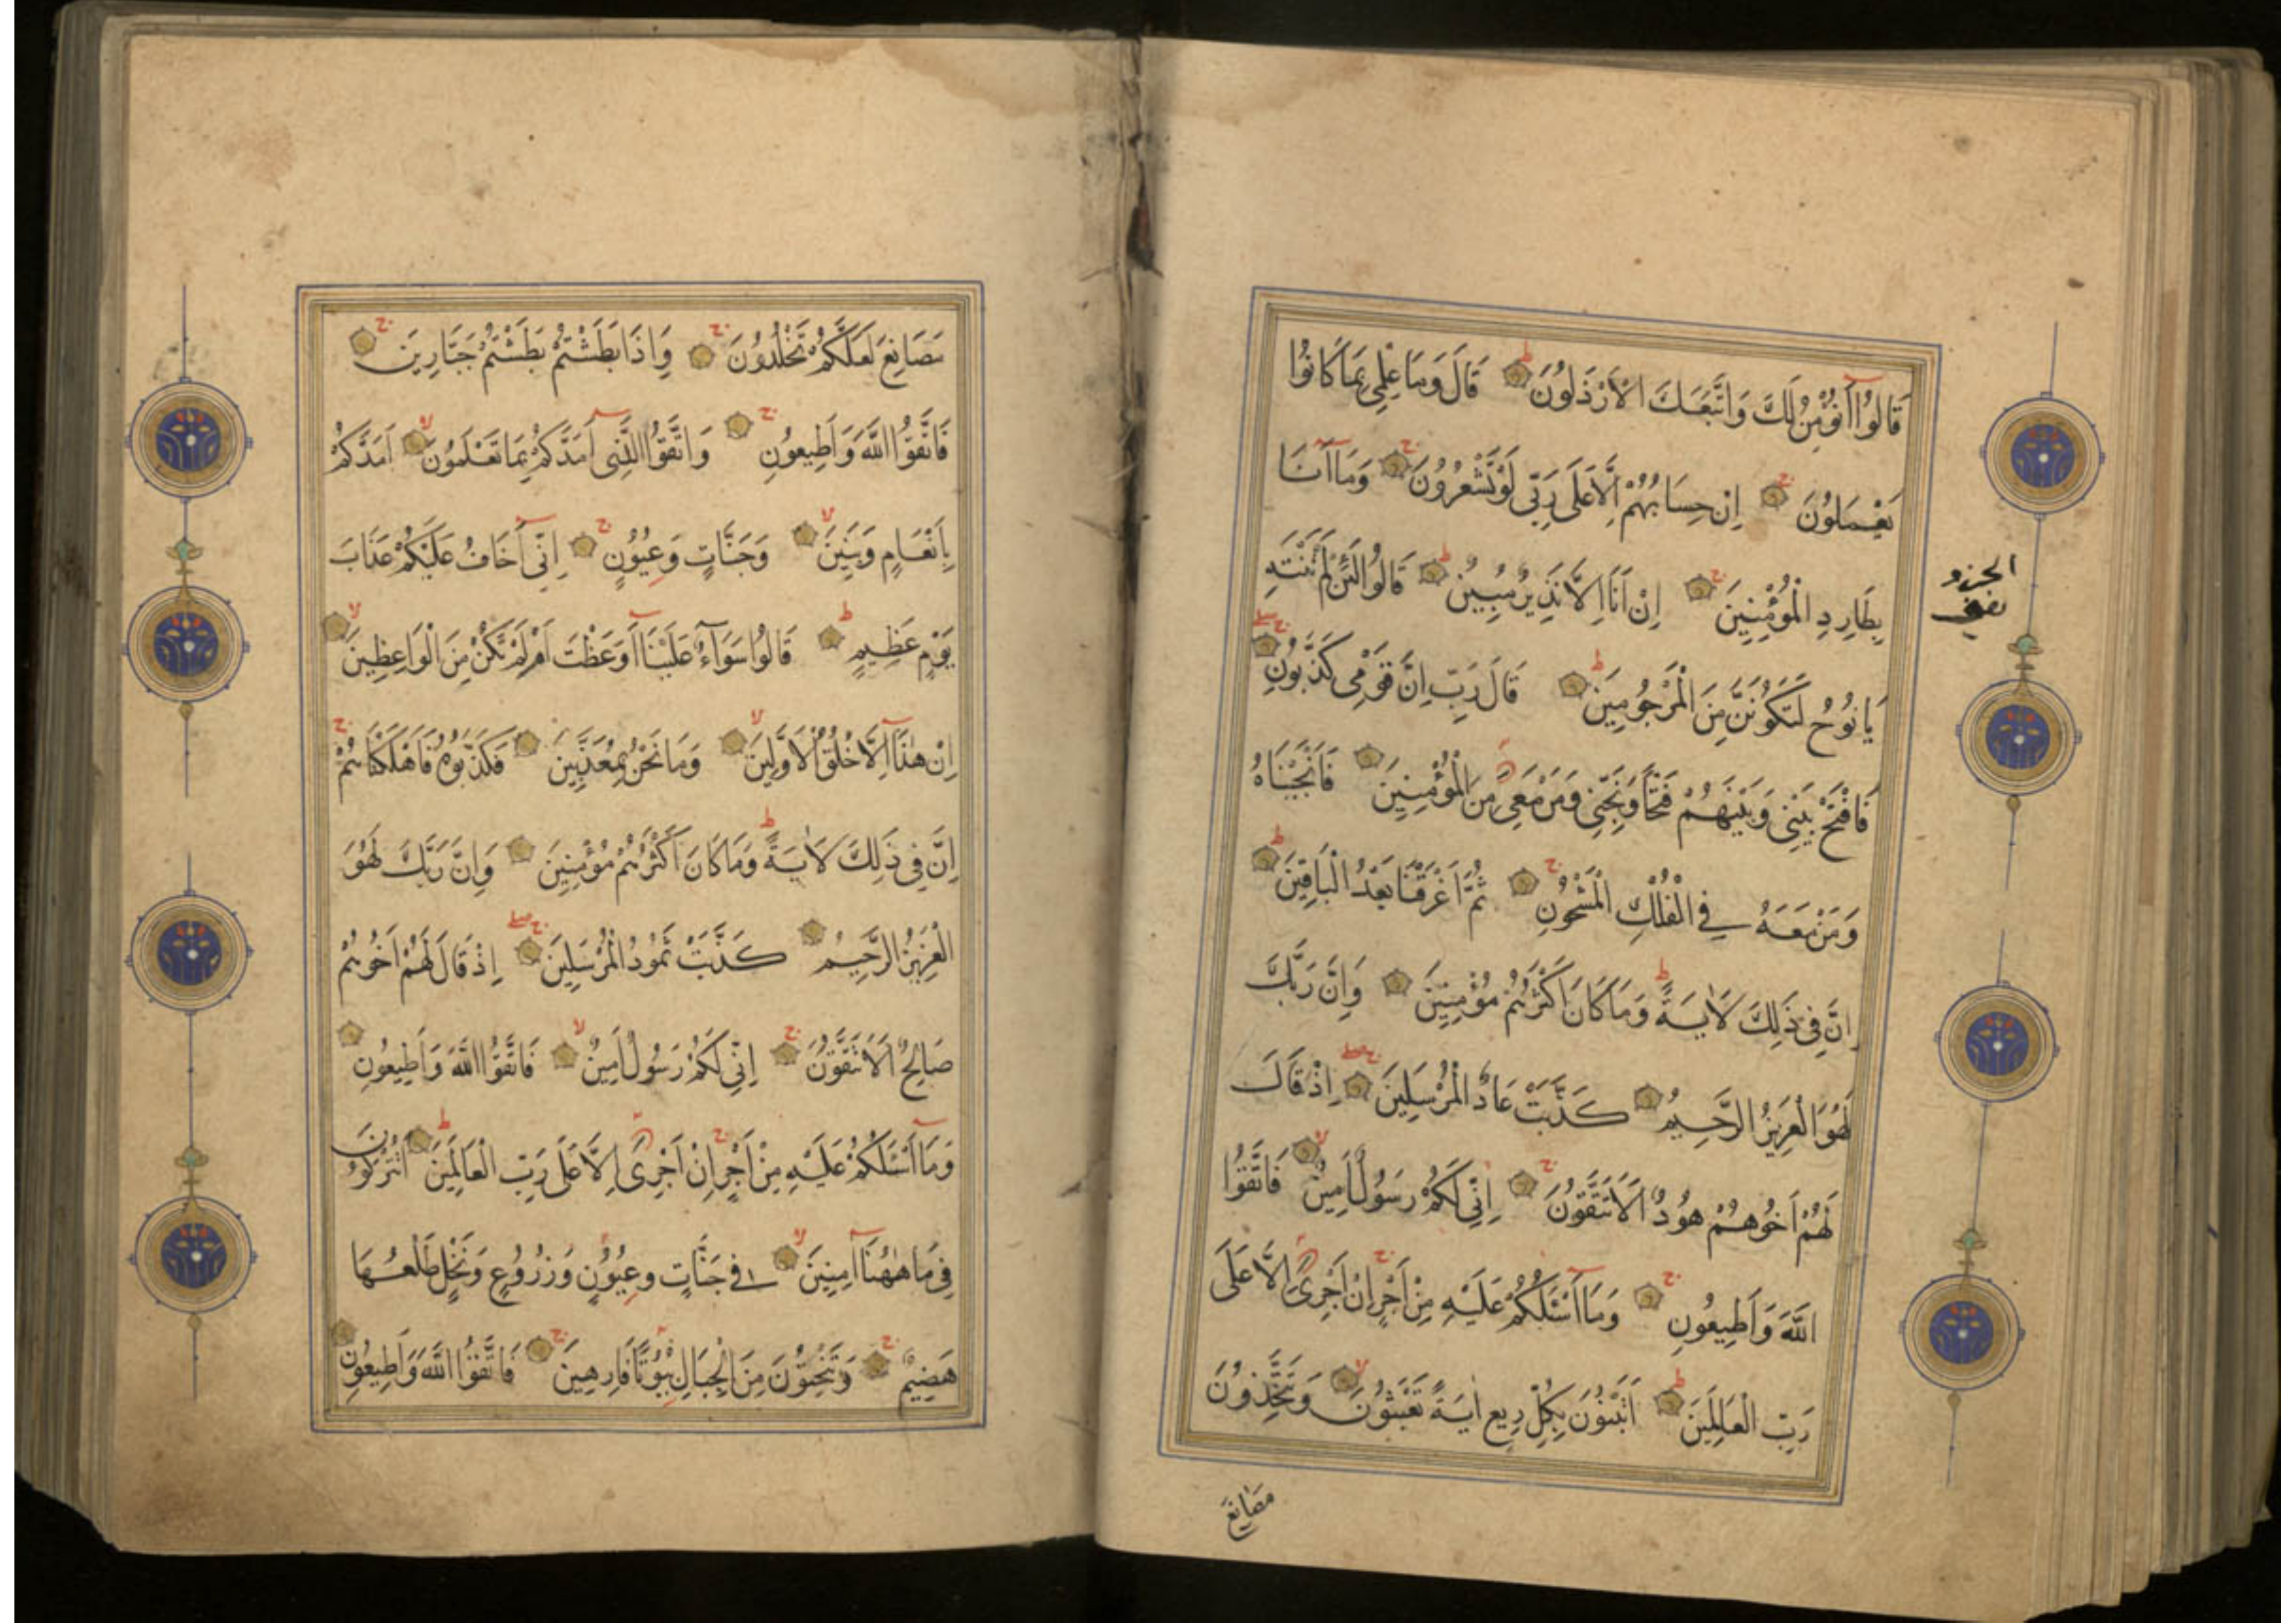 قَالُوا أَنُؤْمِنُ لَكَ وَاتَّبَعَكَ الْأَرْذَلُونَ قَالَ وَمَا عِلْمِي بِمَا كَانُوا
يَعْمَلُونَ إِنْ حِسَابُهُمْ إِلَّا عَلَى رَبِّي لَوْ تَشْعُرُونَ وَمَا أَنَا
بِطَارِدِ الْمُؤْمِنِينَ إِنْ أَنَا إِلَّا نَذِيرٌ مُبِينٌ قَالُوا لَئِنْ لَمْ تَنْتَهِ
يَا نُوحُ لَتَكُونَنَّ مِنَ الْمَرْجُومِينَ قَالَ رَبِّ إِنَّ قَوْمِي كَذَّبُونِ
فَافْتَحْ بَيْنِي وَبَيْنَهُمْ فَتْحًا وَنَجِّنِي وَمَنْ مَعِيَ مِنَ الْمُؤْمِنِينَ فَأَنْجَيْنَاهُ
وَمَنْ مَعَهُ فِي الْفُلْكِ الْمَشْحُونِ ثُمَّ أَغْرَقْنَا بَعْدُ الْبَاقِينَ
إِنَّ فِي ذَلِكَ لَآيَةً وَمَا كَانَ أَكْثَرُهُمْ مُؤْمِنِينَ وَإِنَّ رَبَّكَ
لَهُوَ الْعَزِيزُ الرَّحِيمُ كَذَّبَتْ عَادٌ الْمُرْسَلِينَ إِذْ قَالَ
لَهُمْ أَخُوهُمْ هُودٌ أَلَا تَتَّقُونَ إِنِّي لَكُمْ رَسُولٌ أَمِينٌ فَاتَّقُوا
اللَّهَ وَأَطِيعُونِ وَمَا أَسْئَلُكُمْ عَلَيْهِ مِنْ أَجْرٍ إِنْ أَجْرِيَ إِلَّا عَلَى
رَبِّ الْعَالَمِينَ أَتَبْنُونَ بِكُلِّ رِيعٍ آيَةً تَعْبَثُونَ وَتَتَّخِذُونَ
مصانع
الجزو
نصف
مَصَانِعَ لَعَلَّكُمْ تَخْلُدُونَ وَإِذَا بَطَشْتُمْ بَطَشْتُمْ جَبَّارِينَ
فَاتَّقُوا اللَّهَ وَأَطِيعُونِ وَاتَّقُوا الَّذِي أَمَدَّكُمْ بِمَا تَعْلَمُونَ أَمَدَّكُمْ
بِأَنْعَامٍ وَبَنِينَ وَجَنَّاتٍ وَعُيُونٍ إِنِّي أَخَافُ عَلَيْكُمْ عَذَابَ
يَوْمٍ عَظِيمٍ قَالُوا سَوَاءٌ عَلَيْنَا أَوَعَظْتَ أَمْ لَمْ تَكُنْ مِنَ الْوَاعِظِينَ
إِنْ هٰذَا إِلَّا خُلُقُ الْأَوَّلِينَ وَمَا نَحْنُ بِمُعَذَّبِينَ فَكَذَّبُوهُ فَأَهْلَكْنَاهُمْ
إِنَّ فِي ذَلِكَ لَآيَةً وَمَا كَانَ أَكْثَرُهُمْ مُؤْمِنِينَ وَإِنَّ رَبَّكَ لَهُوَ
الْعَزِيزُ الرَّحِيمُ كَذَّبَتْ ثَمُودُ الْمُرْسَلِينَ إِذْ قَالَ لَهُمْ أَخُوهُمْ
صَالِحٌ أَلَا تَتَّقُونَ إِنِّي لَكُمْ رَسُولٌ أَمِينٌ فَاتَّقُوا اللَّهَ وَأَطِيعُونِ
وَمَا أَسْئَلُكُمْ عَلَيْهِ مِنْ أَجْرٍ إِنْ أَجْرِيَ إِلَّا عَلَى رَبِّ الْعَالَمِينَ أَتُتْرَكُونَ
فِي مَا هٰهُنَا آمِنِينَ فِي جَنَّاتٍ وَعُيُونٍ وَزُرُوعٍ وَنَخْلٍ طَلْعُهَا
هَضِيمٌ وَتَنْحِتُونَ مِنَ الْجِبَالِ بُيُوتًا فَارِهِينَ فَاتَّقُوا اللَّهَ وَأَطِيعُونِ